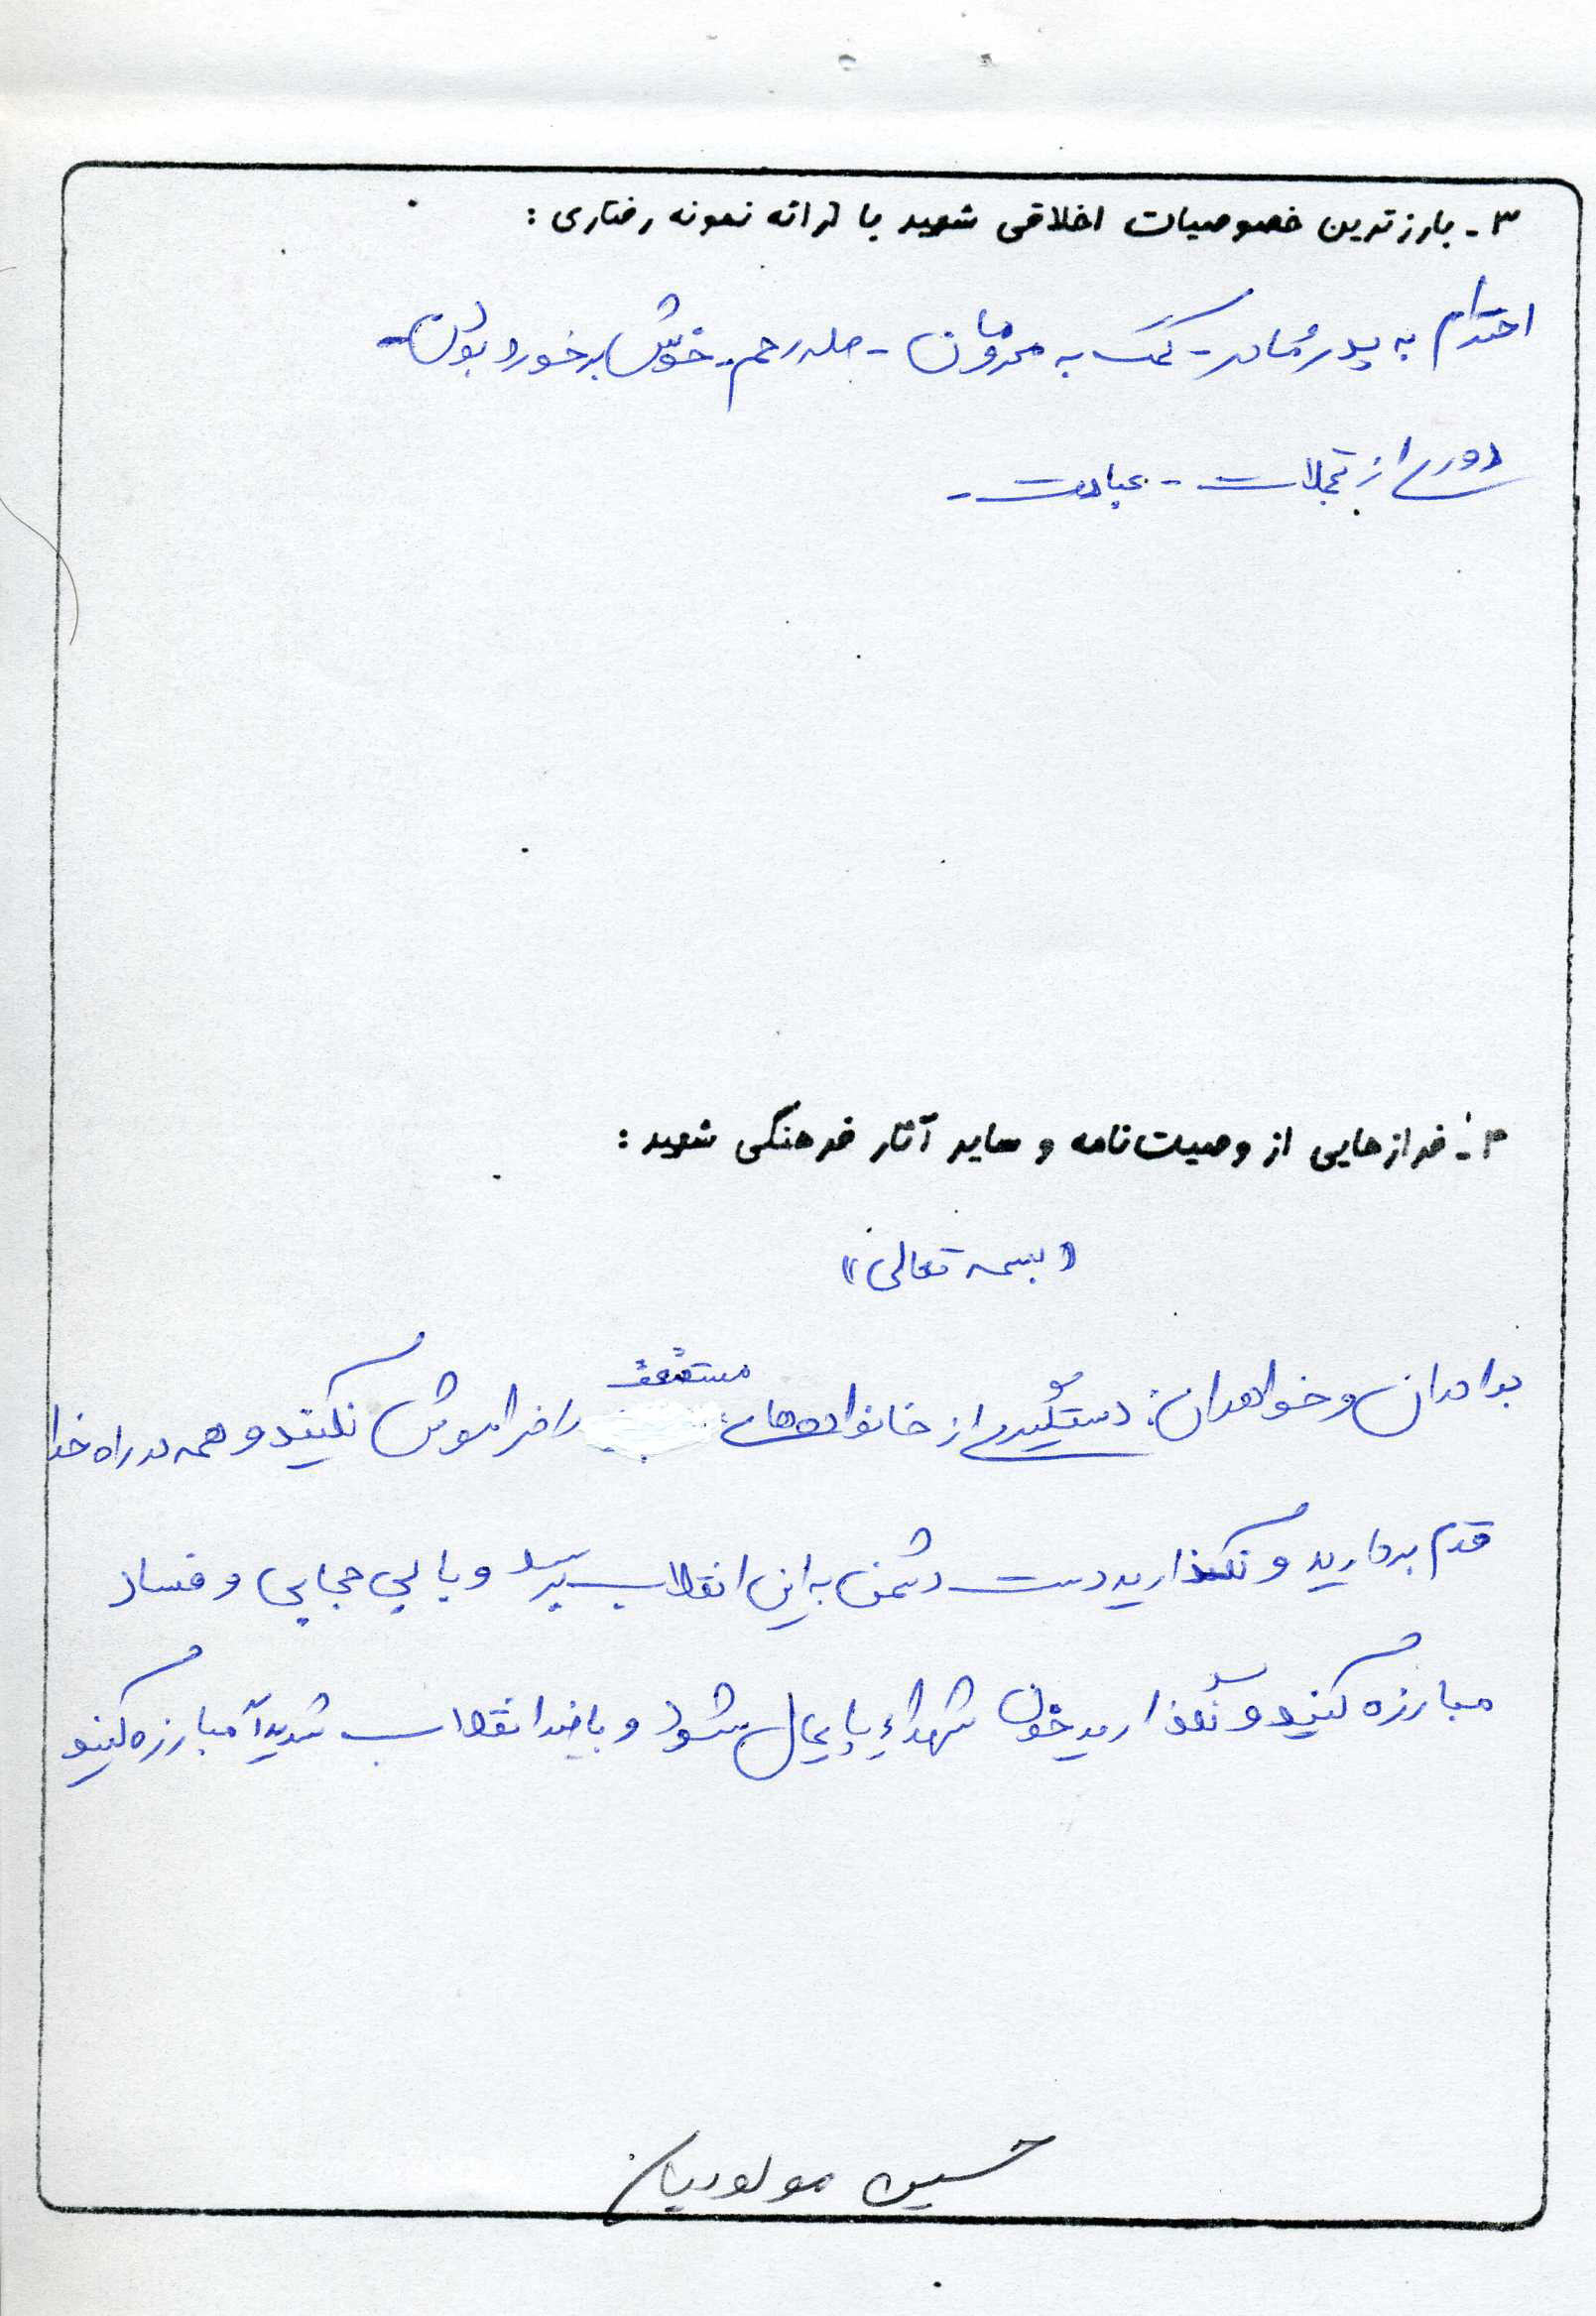 ۳ـ بارزترین خصوصیات اخلاقی شهید با ارائه نمونه رفتاری :
احترام به پدر و مادر - کمک به محرومان - صله رحم - خوش برخورد بودن -
دوری از تجملات - عبادت -
۴ـ فرازهایی از وصیت‌نامه و سایر آثار فرهنگی شهید :
«بسمه تعالی»
برادران و خواهران: دستگیری از خانواده‌های مستضعف را فراموش نکنید و همه در راه خدا
قدم بردارید و نگذارید دست دشمن به این انقلاب برسد و با بی حجابی و فساد
مبارزه کنید و نگذارید خون شهداء پایمال شود و با ضد انقلاب شدیدآ مبارزه کنید
حسین مولودیان